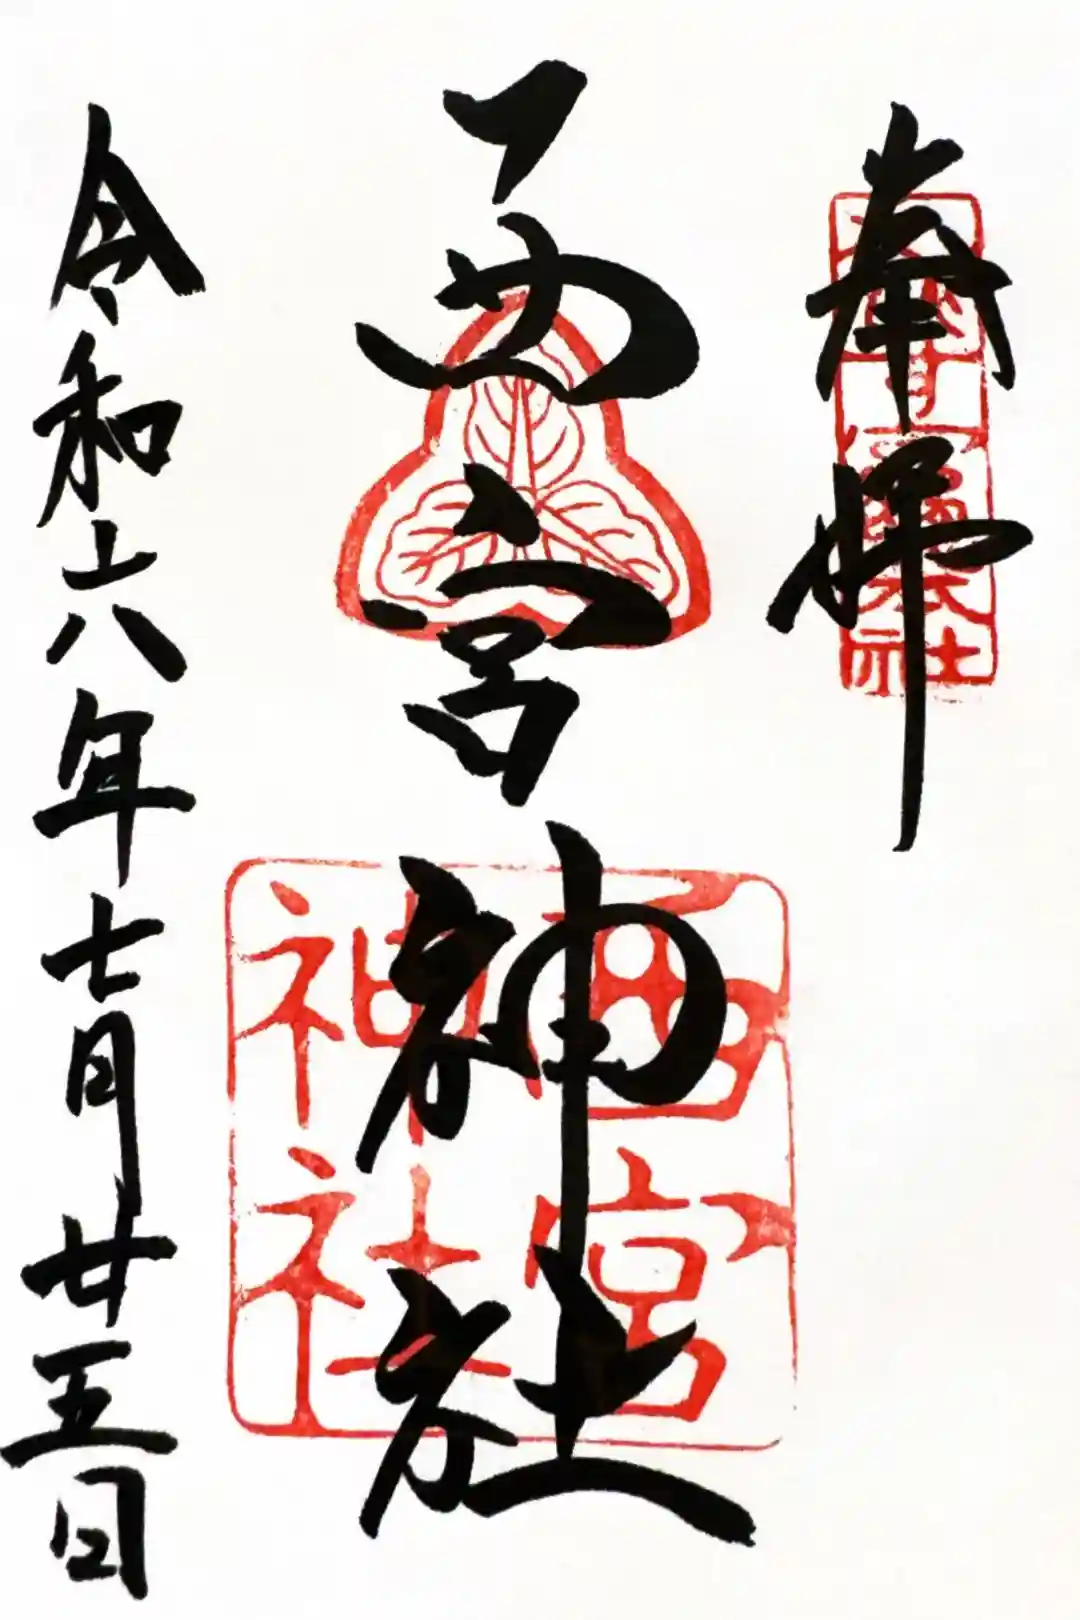 奉拝
西宮神社
令和六年七月廿五日
西宮
神社
本社